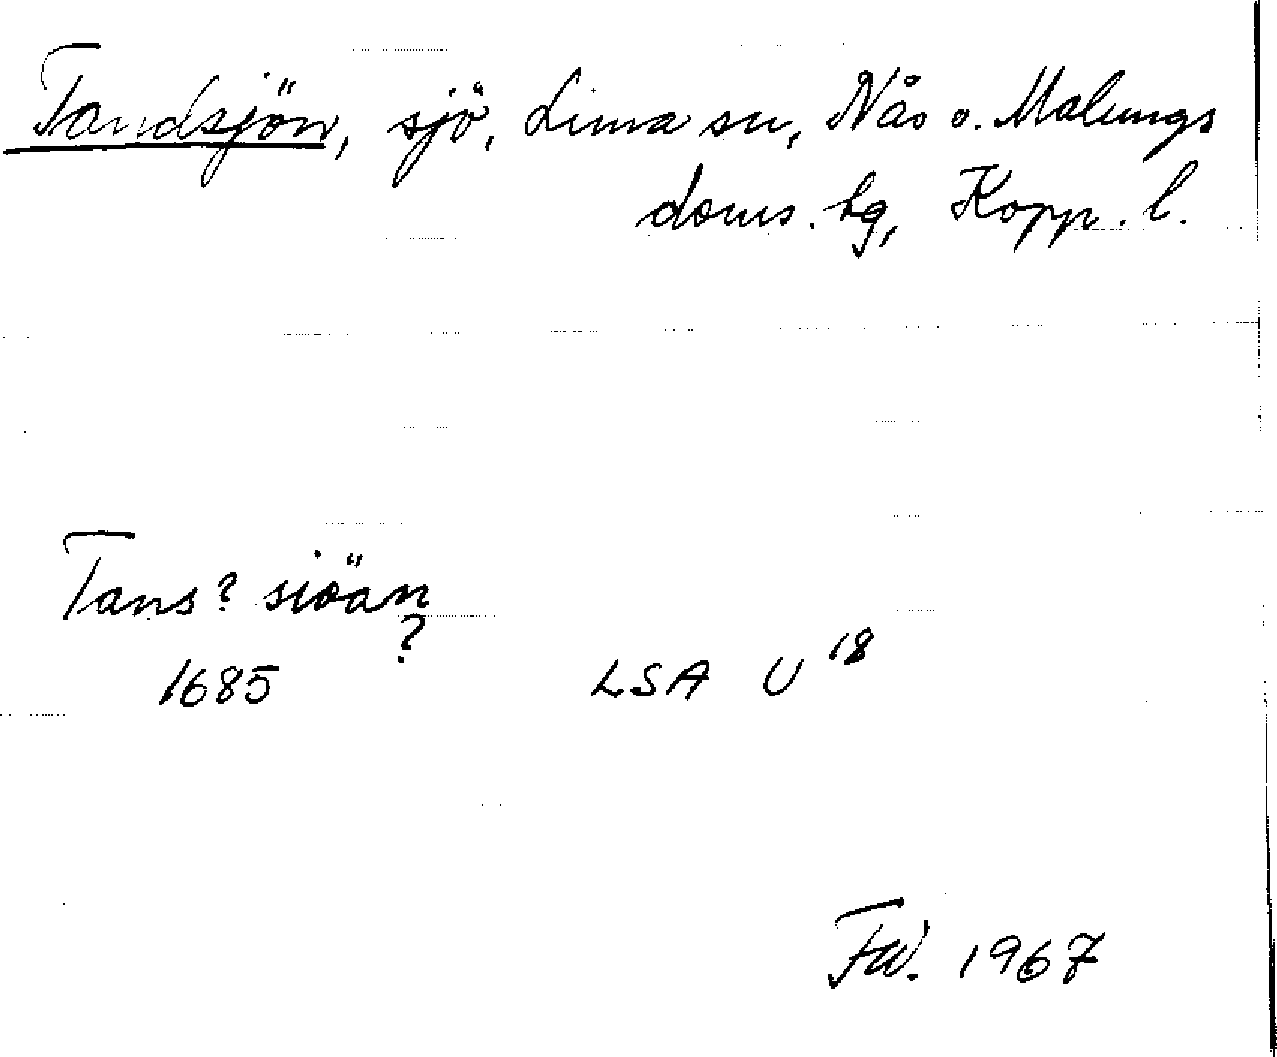 Tandsjön, sjö, Lima sn, Nås o. Malungs
doms. hg, Kopp. l.
Tans? siöän
?
1685 LSA U 18
FW. 1967